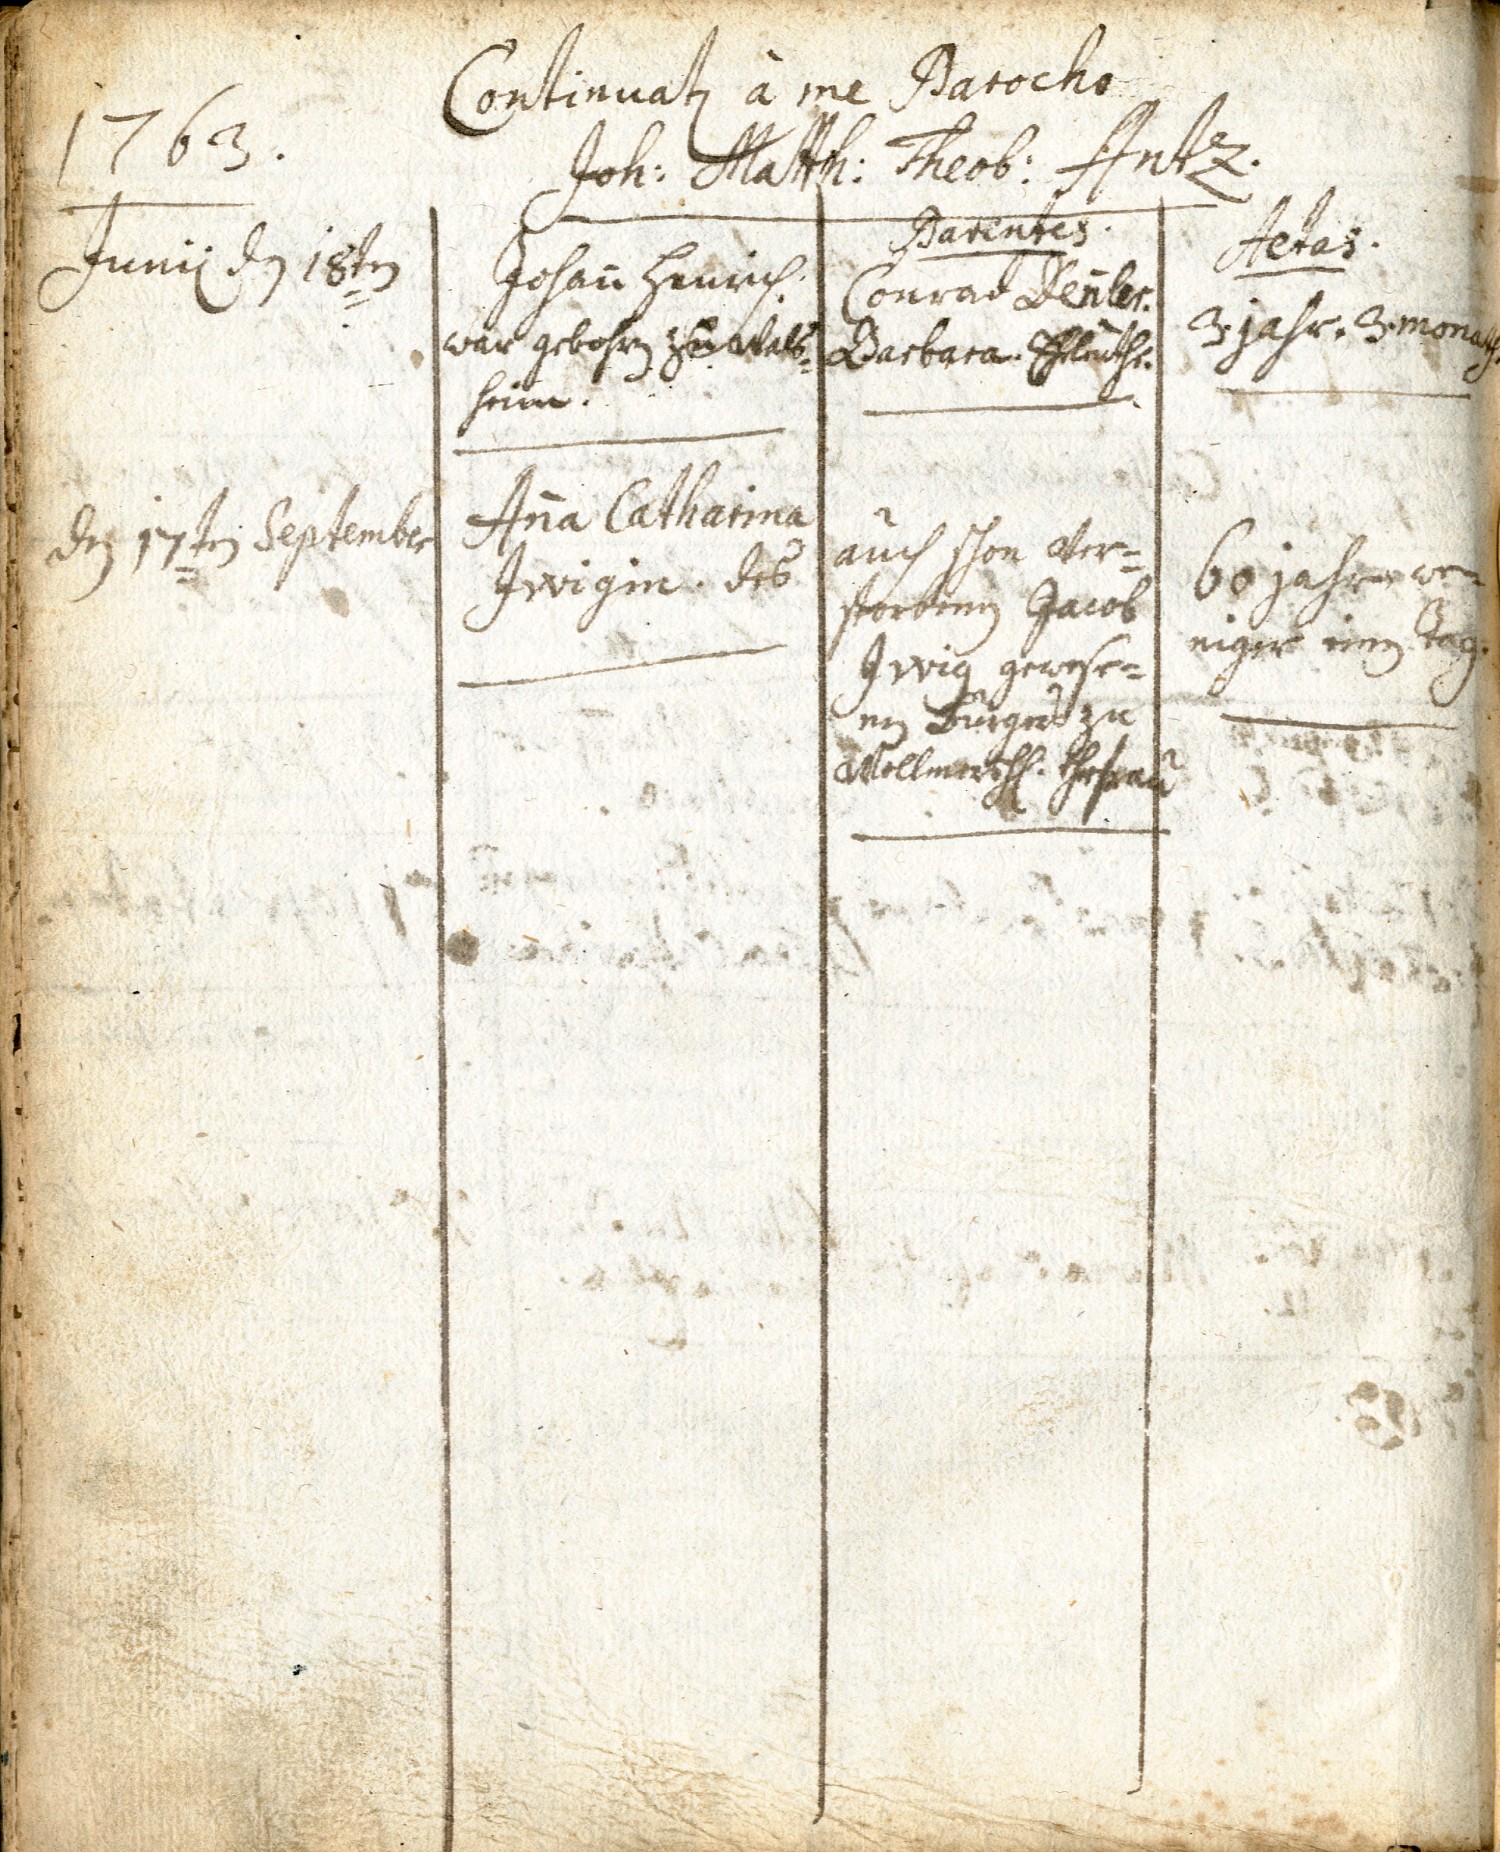 Continuatz à me Parocho
1763.
Joh: Matth: Theob: Antz.
Parentes.
Aetas.
Junij den 18ten
Johañ Henrich.
war gebohren zu Wals=
heim.
Conrad Deñler.
Barbara. Eheleuthe.
3. jahr. 3. monath.
den 17ten September
Aña Catharina
Jwigin. des
auch schon ver=
storbenen Jacob
Jwig gewese=
nen Burgers zu
Vollmersh. Ehefrau
60 jahr we=
niger einen Tag.